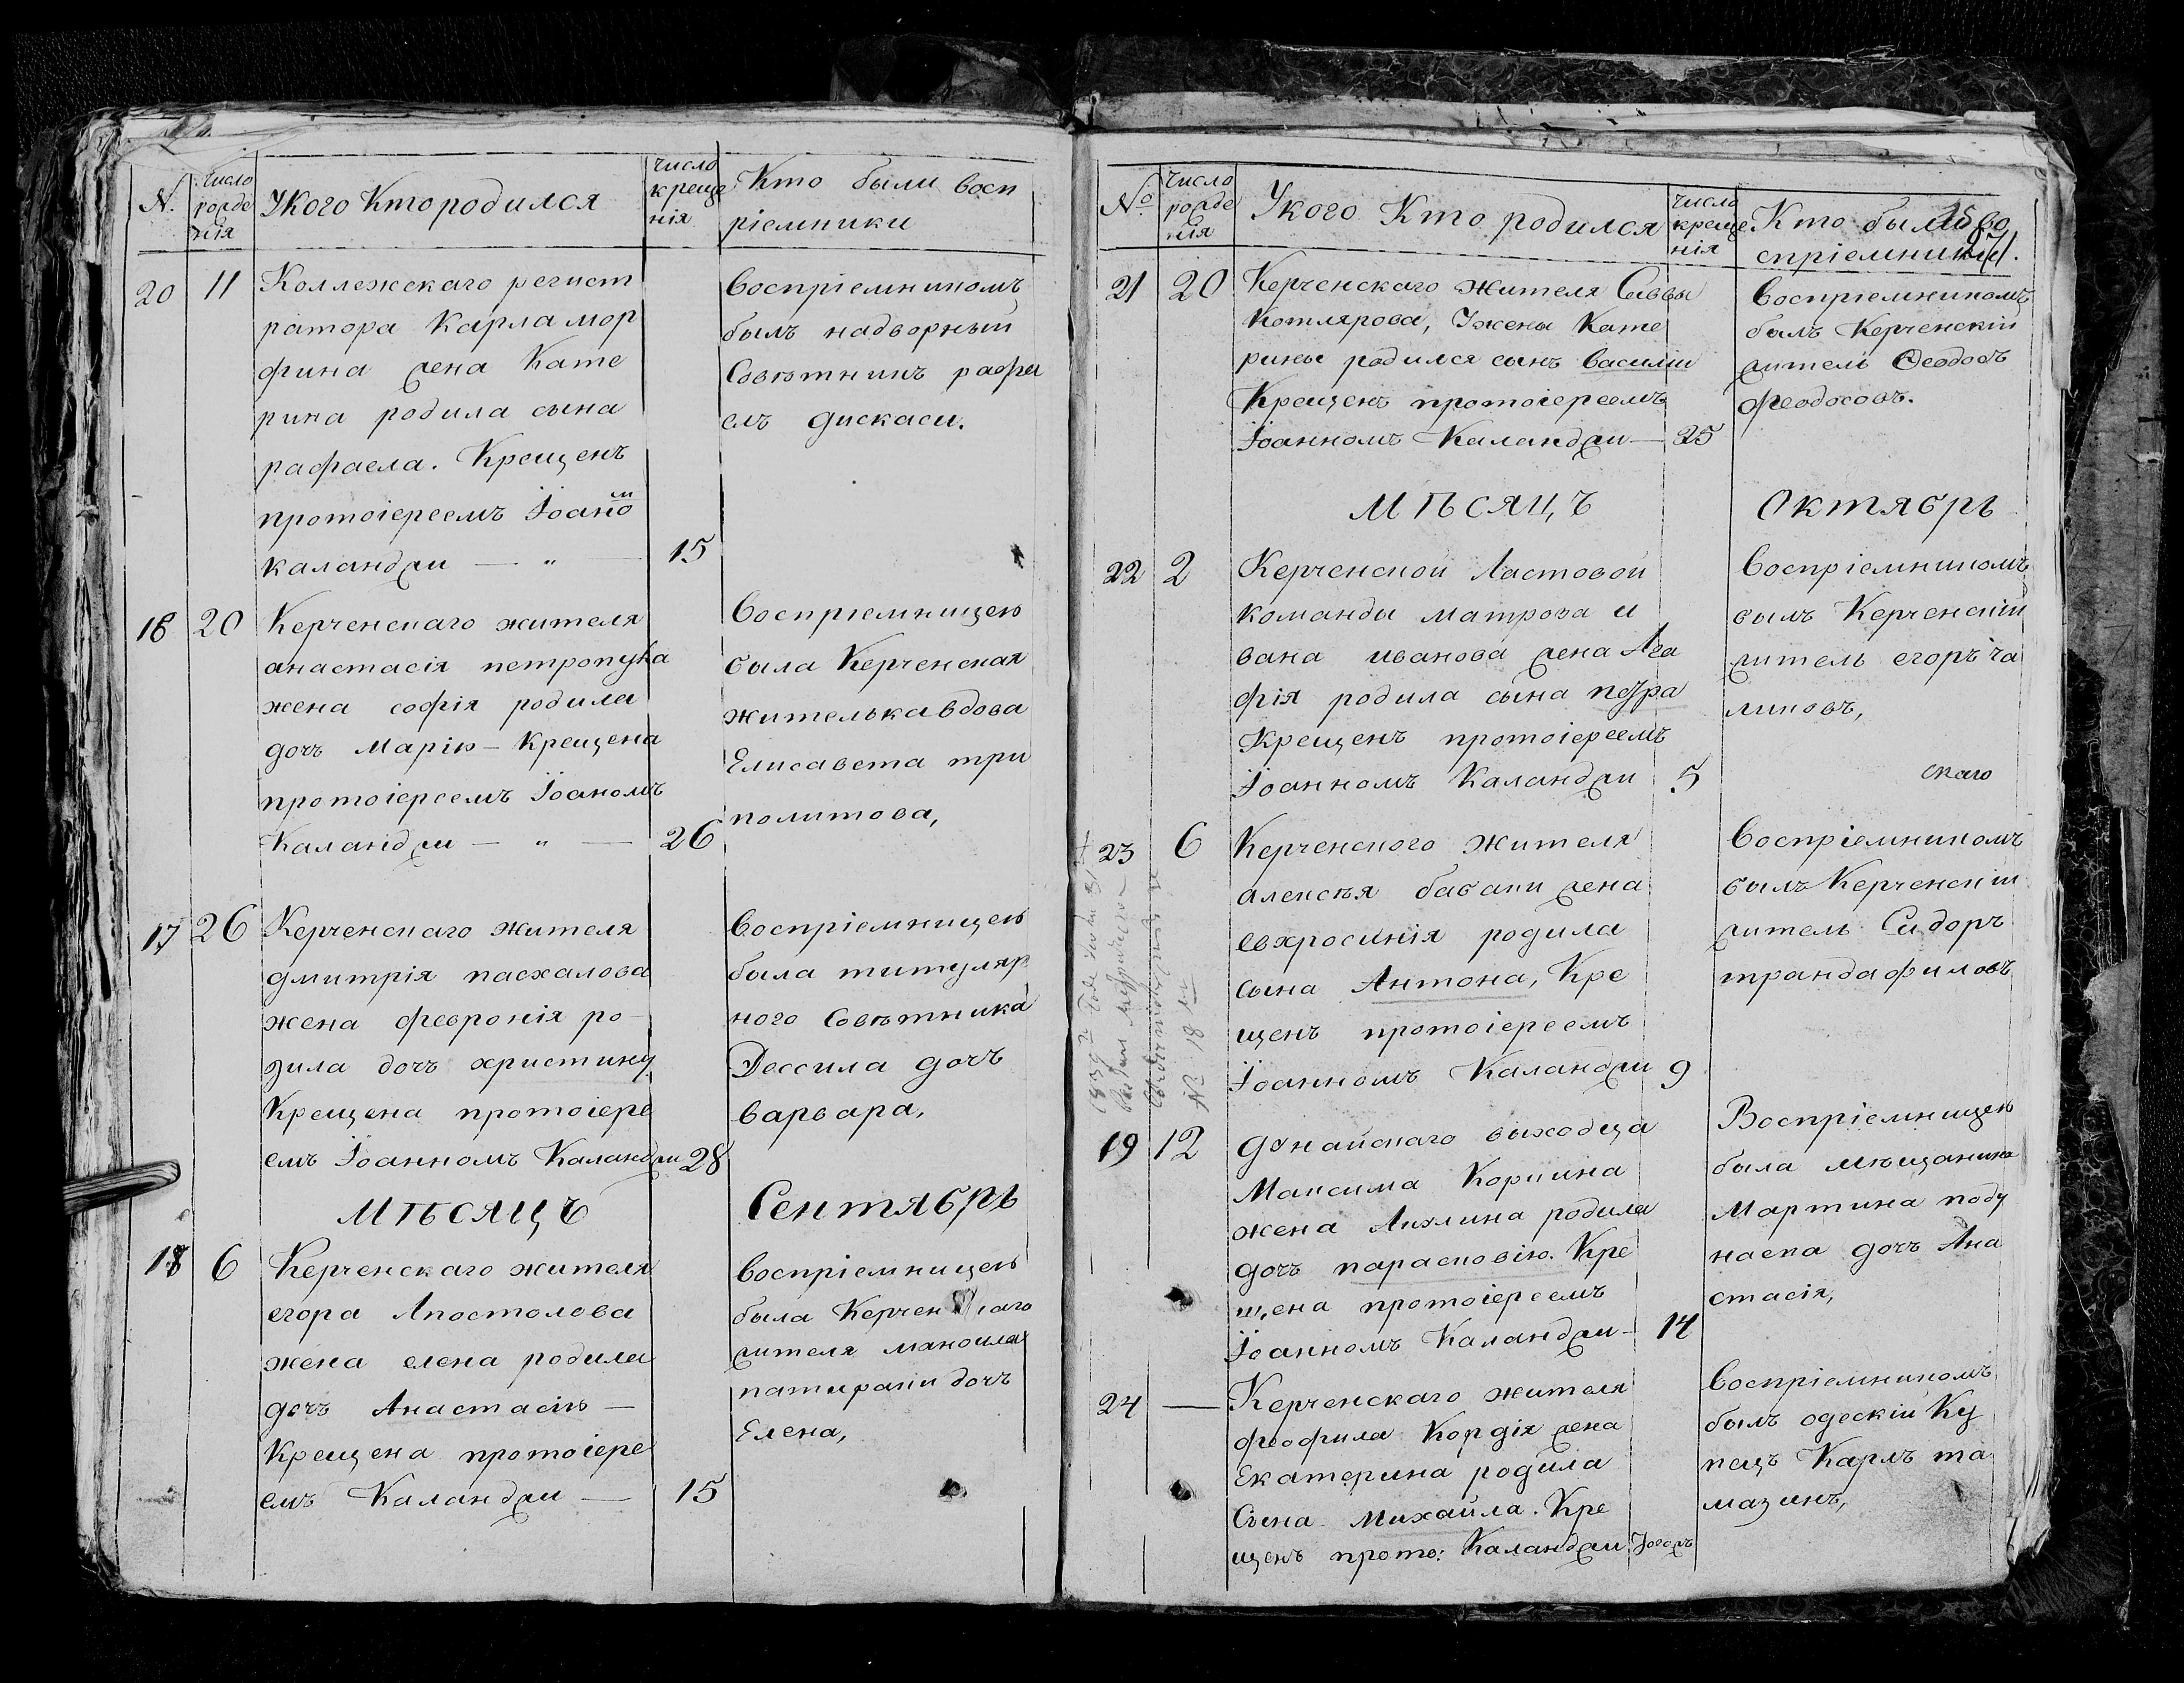 N. число рожде нія Укого Кто родился число креще нія Кто были восп ріемники
20 11 Коллежскаго регист
ратора Карла мор
фина жена Кате
рина родила сына
рафаела. Крещенъ
протоіереемъ Іоаном
каланджи — „ — 15
воспріемникомъ
былъ надворный
Совѣтникъ рафа
елъ дискаси.
16 20 Керченскаго жителя
анастасія петропука
жена софія родила
дочъ Марію — Крещена
протоіереемъ Іоаномъ
Каланджи — „ — 26
воспріемницею
была Керченская
жителька вдова
Елисавета три
политова,
17 26 Керченскаго жителя
дмитрія пасхалова
жена февронія ро
дила дочъ христину
Крещена протоіере
емъ Іоанномъ Каланджи 28
воспріемницею
была титуляр
ного Совѣтника
Дессила дочъ
варвара,
МѢСЯЦЪ Сентябрь
18 6 Керченскаго жителя
егора Апостолова
жена елена родила
дочъ Анастасію —
Крещена протоіере
емъ Каланджи — 15
воспріемницею
была Керченскаго
жителя манойла
дочъ
Елена,
№ число рожде нія Укого Кто родился число креще нія Кто были во спріемники.
21 20 Керченскаго жителя Саввы
Котлярова, Ужены Кате
рины родился сынъ василій
Крещенъ протоіереемъ
Іоанномъ Каланджи — 25
воспріемникомъ
былъ Керченскій
житель Феодосъ
феодосовъ.
МѢСЯЦЪ Октябрь
22 2 Керченской Ластовой
команды матроза и
вана иванова жена Ага
фія родила сына петра
Крещенъ протоіереемъ
Іоанномъ Каланджи 5
воспріемникомъ
былъ Керченскій
житель егоръ ча
ликовъ,
скаго
23 6 Керченского жителя
алексѣя бабаки жена
евхросинія родила
сына Антона, Кре
щенъ протоіереемъ
Іоанномъ Каланджи 9
воспріемникомъ
былъ Керченскій
житель Сидоръ
трандафиловъ
№ 18
19 12 дунайскаго выходца
Максима Коркина
жена Акилина родила
дочъ парасковію. Кре
щена протоіереемъ
Іоанномъ Каланджи — 14
Воспріемницею
была мѣщанина
Мартина поду
наека дочъ Ана
стасія,
24 — Керченскаго жителя
феофила Кордія жена
Екатерина родила
Сына Михаила. Кре
щенъ прото: Каланджи
воспріемникомъ
былъ одескій Ку
пецъ Карлъ та
мазинъ,